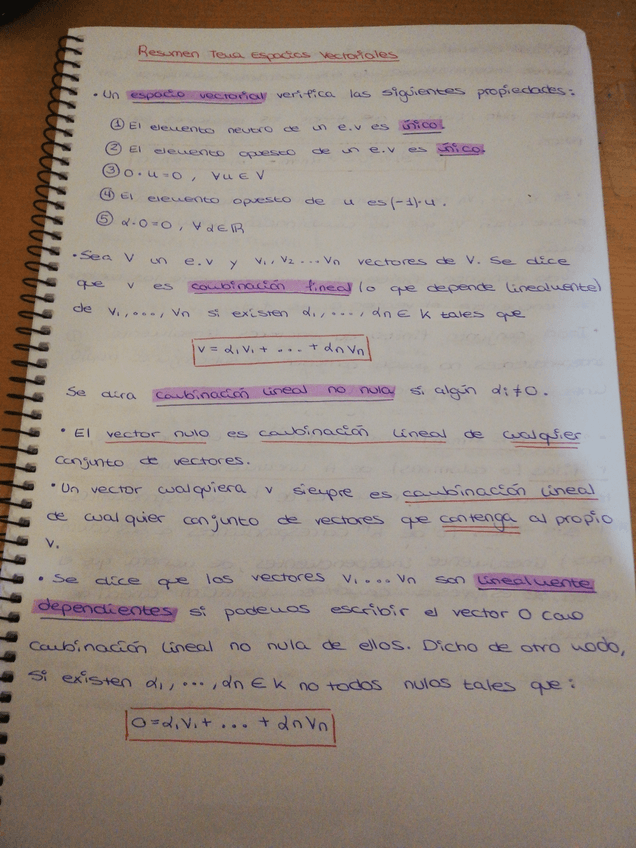 Resumen Tema Espacios Vectoriales
• Un espacio vectorial verifica las siguientes propiedades:
① El elemento neutro de un e.v es único.
② El elemento opuesto de un e.v es único.
③ 0·u=0, ∀u∈V
④ El elemento opuesto de u es (-1)·u.
⑤ α·0=0, ∀α∈ℝ
• Sea V un e.v y v₁, v₂ ... vn vectores de V. Se dice
que v es combinación lineal (o que depende linealmente)
de v₁, ..., vn si existen α₁, ..., αn ∈ K tales que
v = α₁v₁ + ... + αnvn
Se dira combinación lineal no nula si algún αi ≠ 0.
• El vector nulo es combinación lineal de cualquier
conjunto de vectores.
• Un vector cualquiera v siempre es combinación lineal
de cualquier conjunto de vectores que contenga al propio
v.
• Se dice que los vectores v₁ .... vn son linealmente
dependientes si podemos escribir el vector 0 como
combinación lineal no nula de ellos. Dicho de otro modo,
si existen α₁, ..., αn ∈ K no todos nulos tales que:
0 = α₁v₁ + ... + αnvn